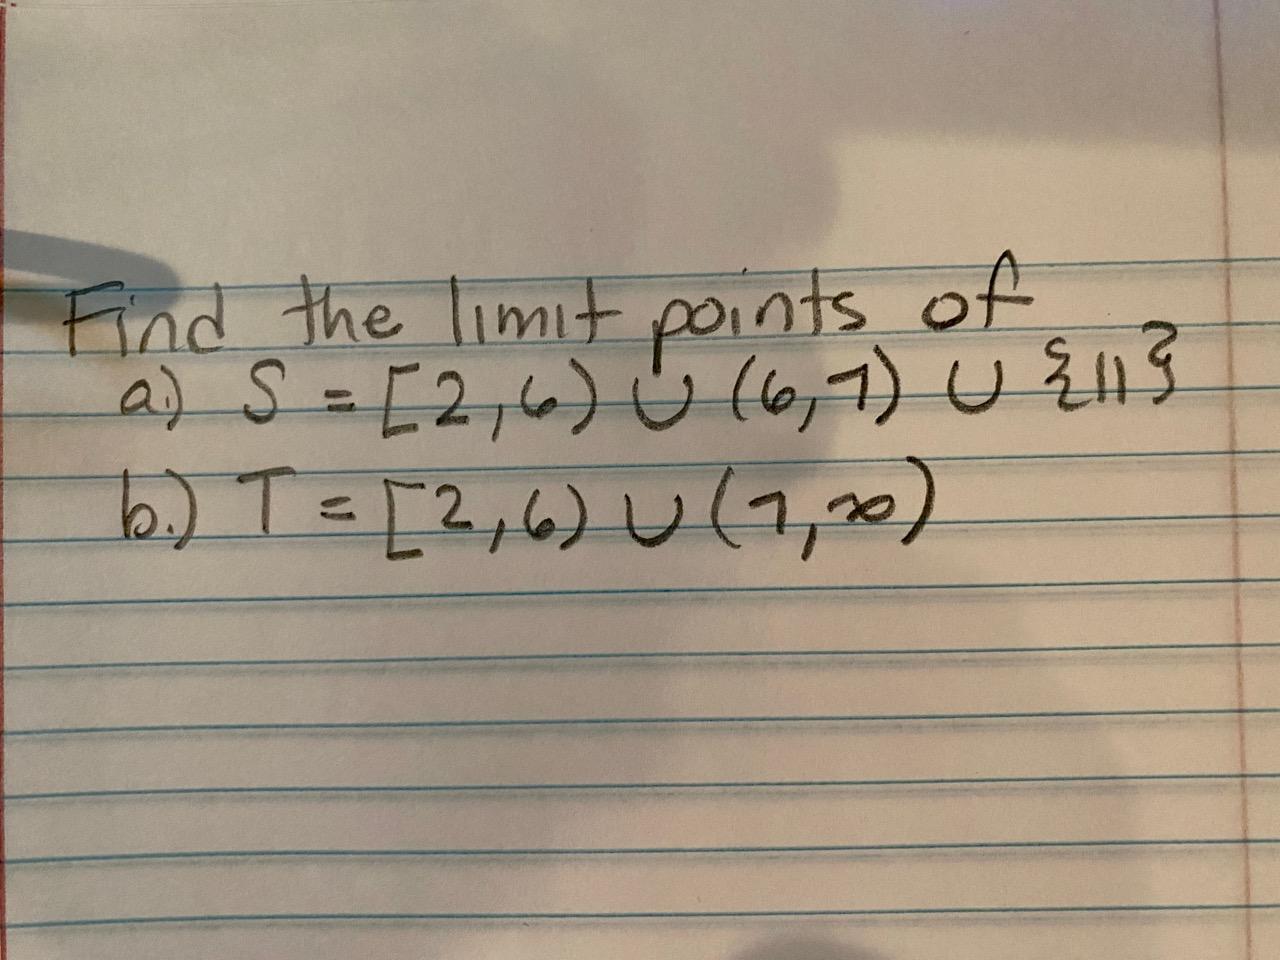 Find the limit points of
a.) S = [2,6) ∪ (6,7) ∪ {11}
b.) T = [2,6) ∪ (7,∞)